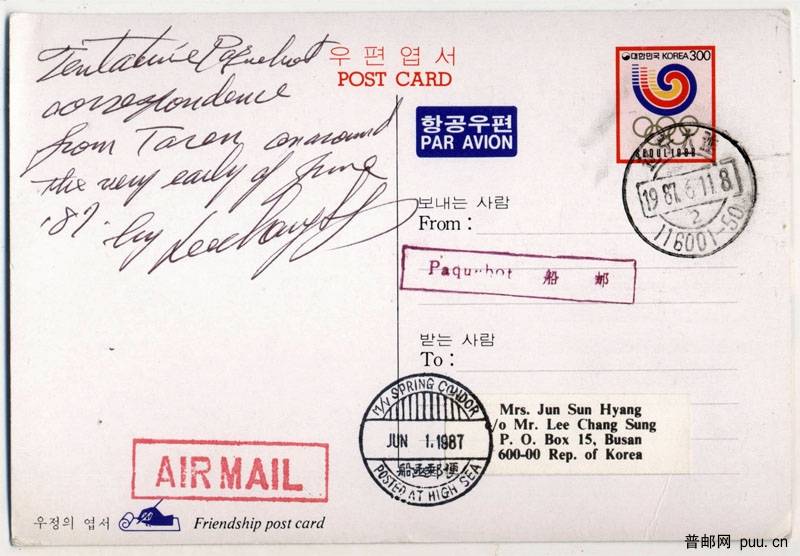 Tentative Paquebot
correspondence
from Taren on around
the very early of June
'87. by
우편엽서
POST CARD
대한민국 KOREA 300
SEOUL 1988
항공우편
PAR AVION
1987.6.11.8
2
116001-50
보내는 사람
From:
Paquebot 船 邮
받는 사람
To:
M/V SPRING CONDOR
JUN 1.1987
POSTED AT HIGH SEA
Mrs. Jun Sun Hyang
c/o Mr. Lee Chang Sung
P. O. Box 15, Busan
600-00 Rep. of Korea
AIR MAIL
우정의 엽서
Friendship post card
普邮网 puu.cn